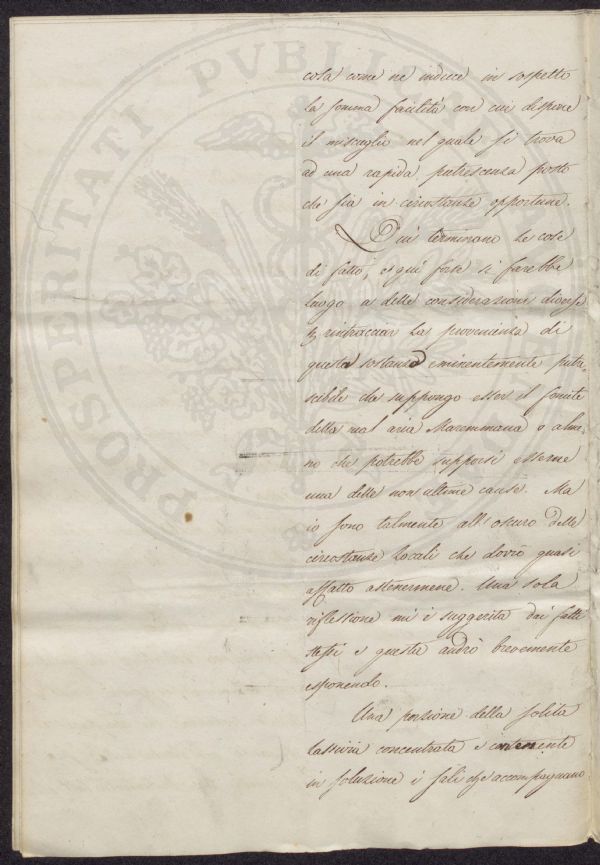 PROSPERITATI PVBLICAE
cosa come ne induce in sospetto
la somma facilità con cui dispone
il miscuglio nel quale si trova
ad una rapida putrescenza posto
che sia in circostanze opportune.
Qui terminano le cose
di fatto, e qui forse si farebbe
luogo a delle considerazioni diverse
rintracciar la provenienza di
questa sostanza eminentemente putre-
scibile che suppongo esser il fomite
della mal aria Maremmana o alme-
no che potrebbe supporsi esserne
una delle non ultime cause. Ma
io sono talmente all'oscuro delle
circostanze locali che dovrò quasi
affatto astenermene. Una sola
riflessione mi è suggerita dai fatti
stessi e questa andrò brevemente
esponendo.
Una porzione della solita
lassivia concentrata e contenente
in soluzione i sali che accompagnano